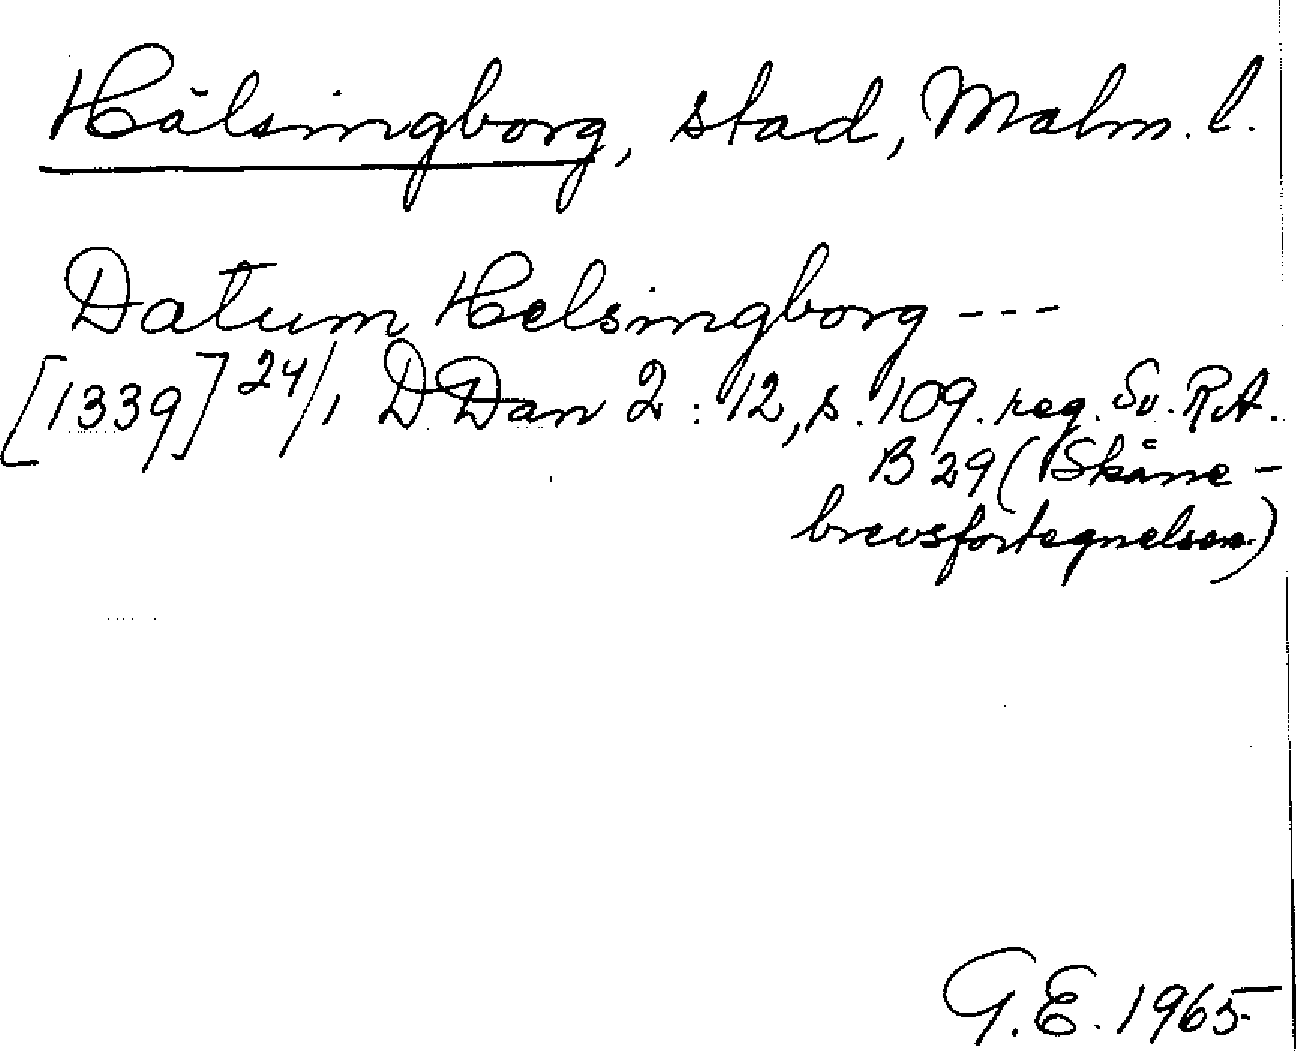 Hälsingborg, stad, Malm. l.
Datum Helsingborg ---
[1339] 24/1 DDan 2:12, s. 109. reg. Sv. RA.
B 29 (Skåne-
brevsfortegnelsen)
G.E. 1965